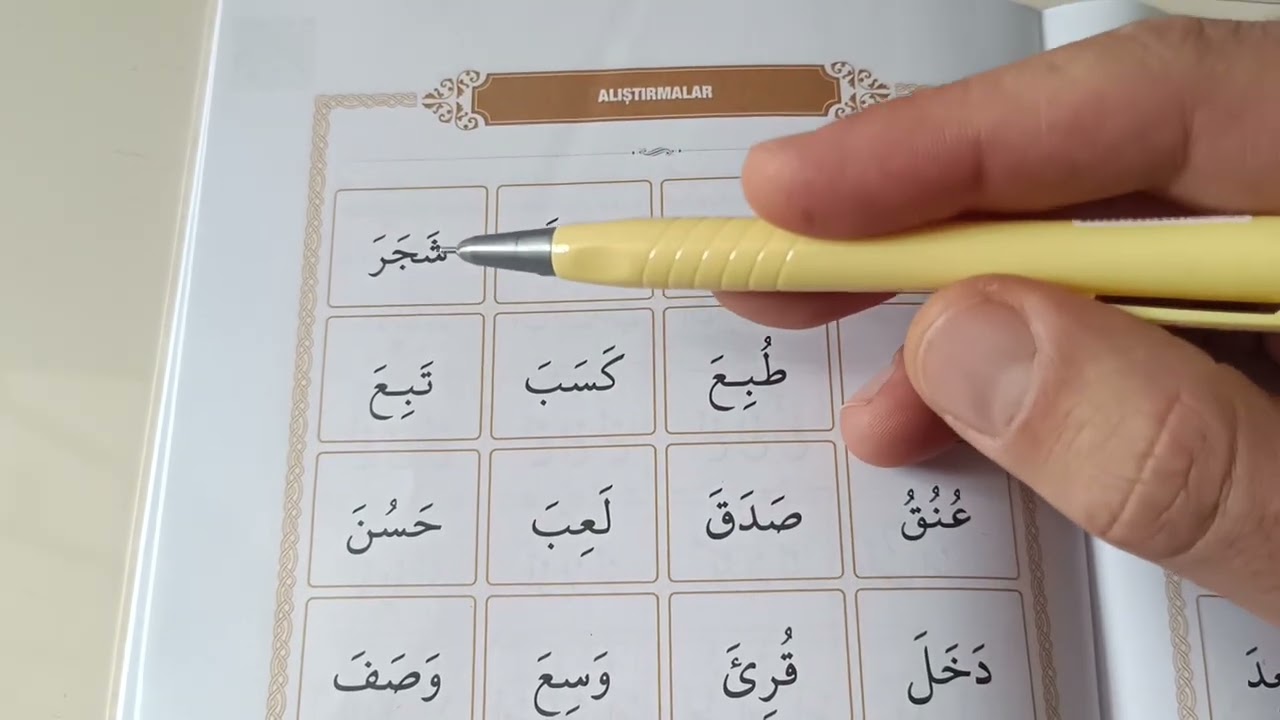 ALIŞTIRMALAR
شَجَرَ
طُبِعَ كَسَبَ تَبِعَ
عُنُقُ صَدَقَ لَعِبَ حَسُنَ
دَخَلَ قُرِئَ وَسِعَ وَصَفَ